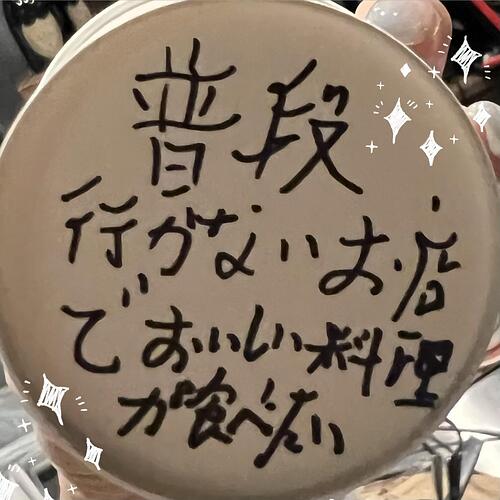 普段
行がないお店
でおいしい料理
が食べたい